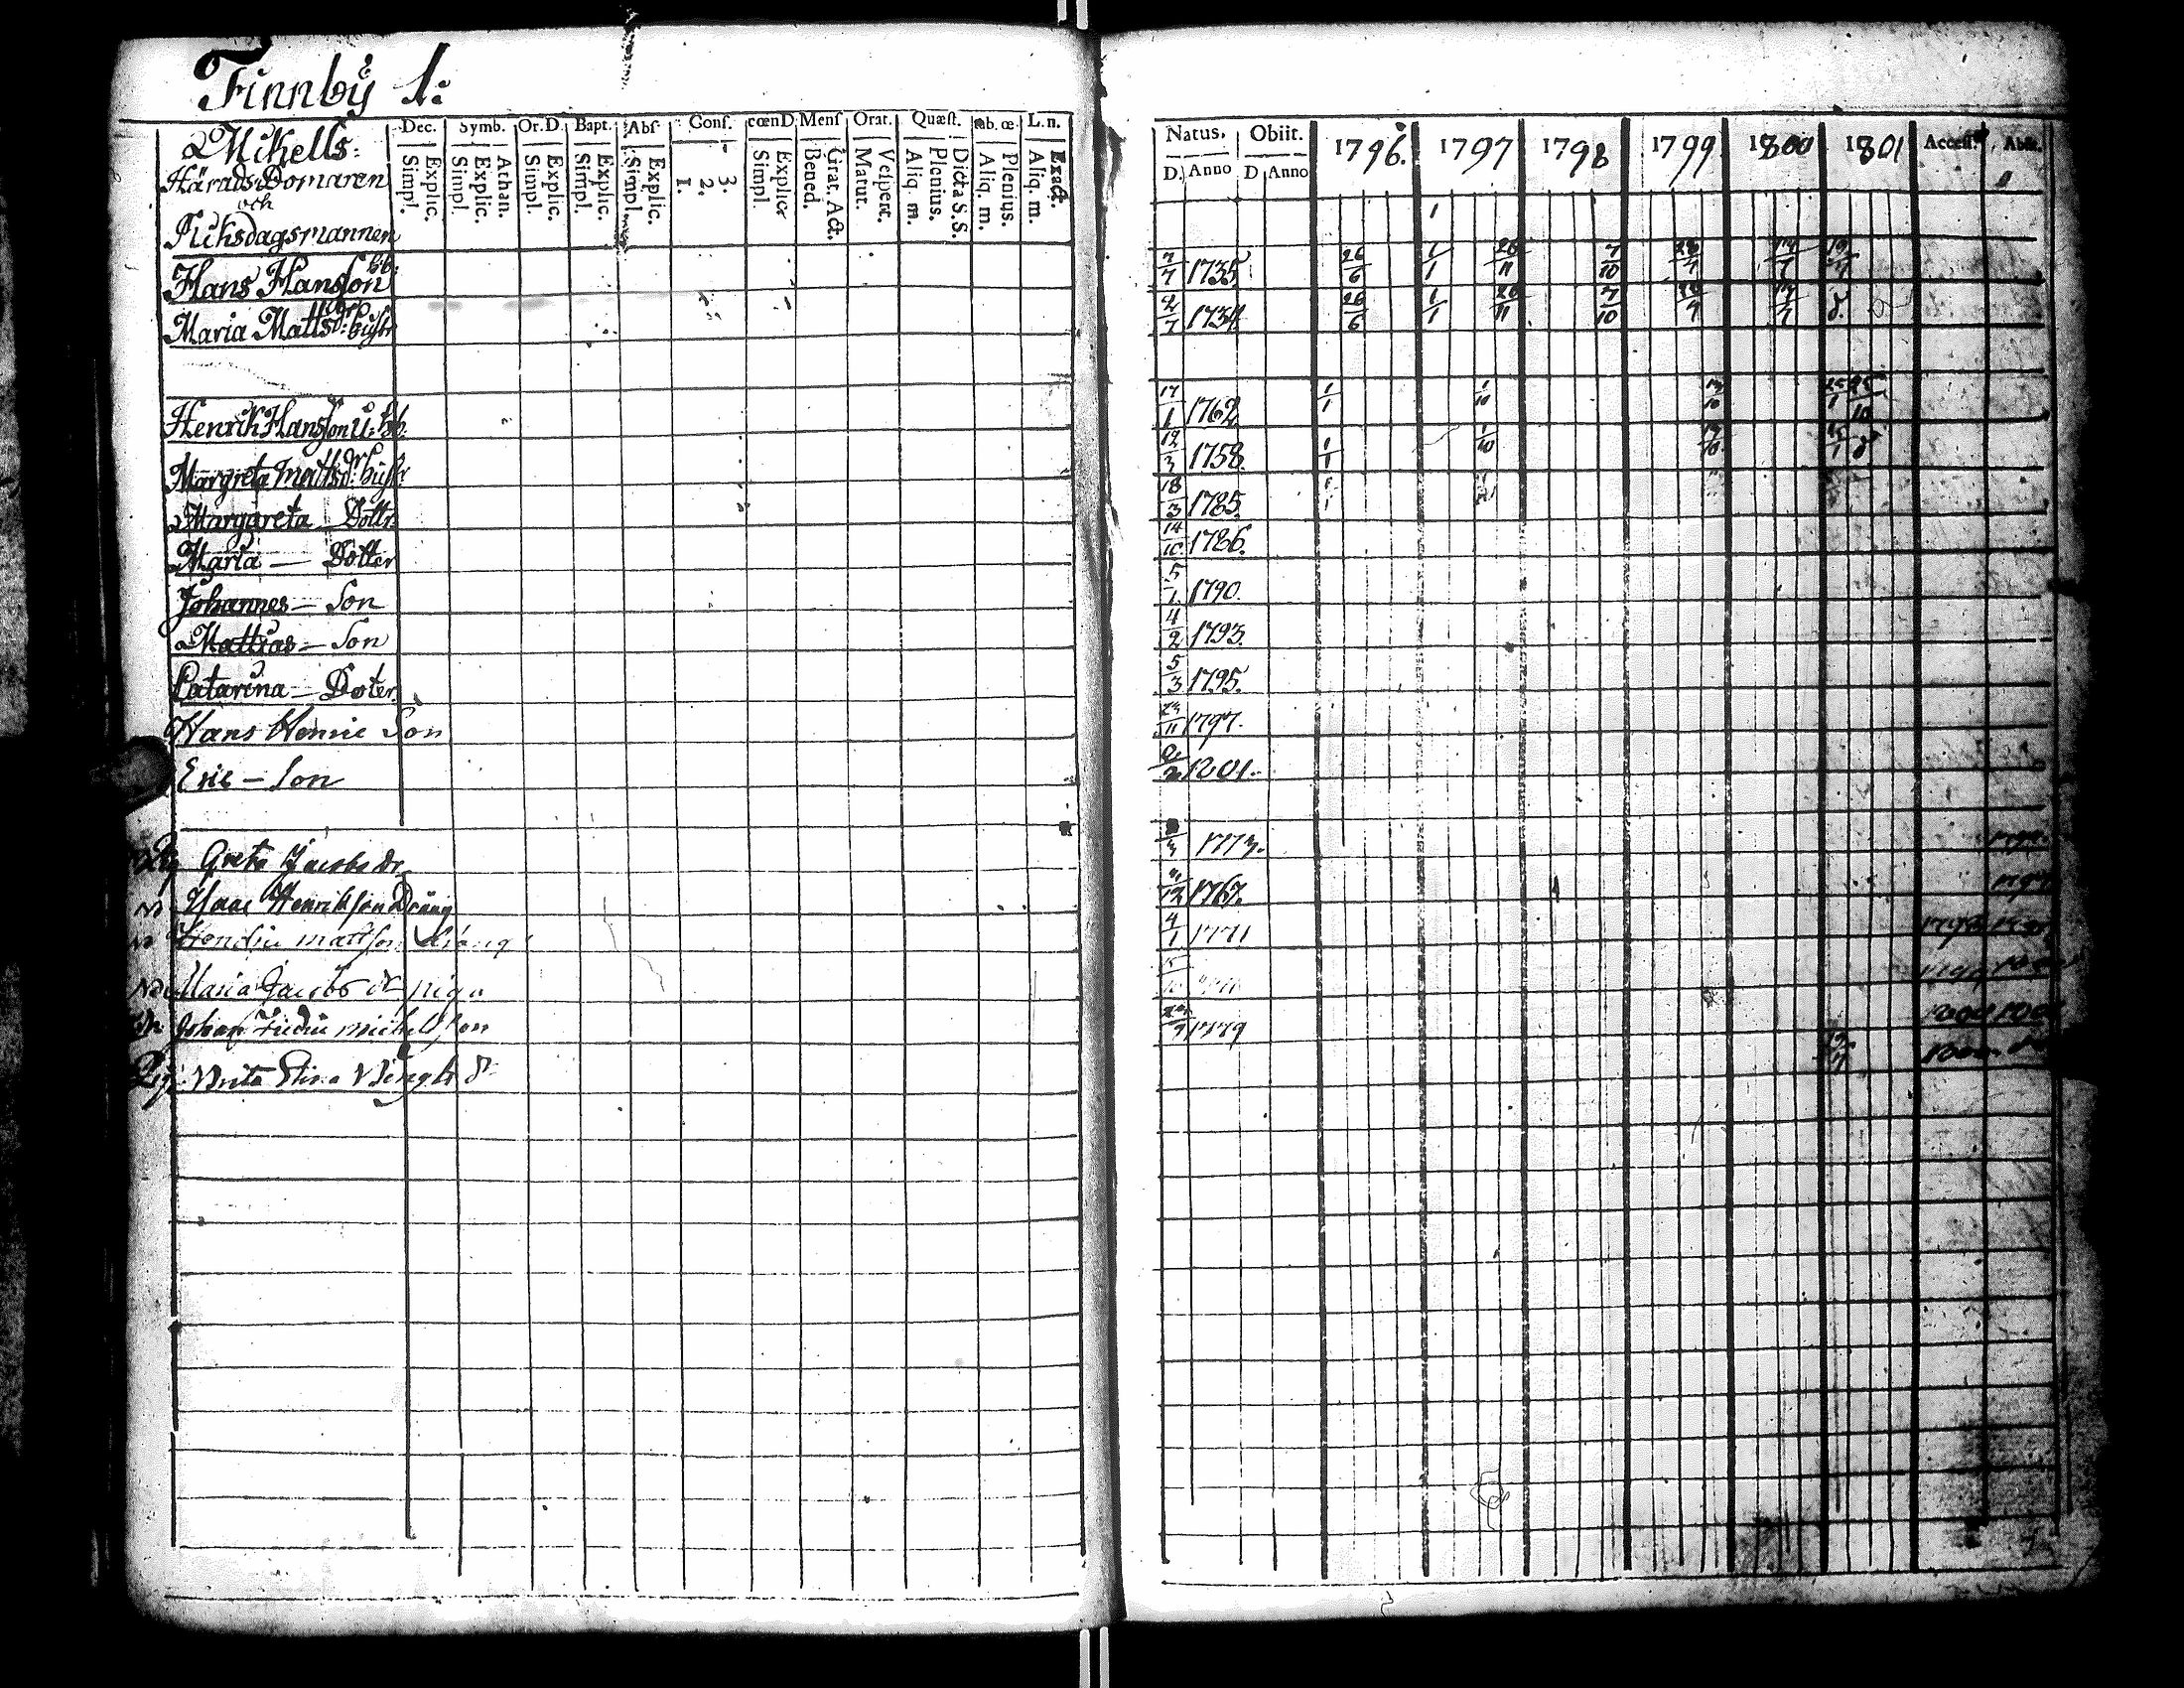 Finnby 1:
Mikells:
Härads Domaren
och
Riksdagsmannen
Dec. Symb. Or.D. Bapt. Abs. Conf. cœnD Mens Orat. Quæst. Tab. œ. L.n.
Simpl. Explic. Simpl. Explic. Athan. Simpl. Explic. Simpl. Explic. Simpl. Explic. 1. 2. 3. Simpl. Explic. Bened. Grat. Act. Matut. Vespert. Aliq. m. Plenius. Dicta S.S. Aliq. m. Plenius. Aliq. m. Exact.
Natus. Obiit. 1796. 1797 1798 1799 1800 1801 Access. Abiit.
D. Anno D Anno
1
Hans Hansson bb: 7/7 1735 26/6 1/1 26/11 7/10 28/7 14/7 19/7
Maria Mattsdr: hustr 4/7 1734 26/6 1/1 26/11 7/10 28/7 14/7 d.
Henrik Hansson u: bb. 17/1 1762 1/1 1/10 13/10 25/1 25/10
Margreta Mattsdr: hustr 12/3 1758. 1/1 1/10 13/10 25/1 d
Margareta Dottr 18/3 1785.
Maria — Dotter 14/10 1786.
Johannes — Son 5/1 1790.
Mattias — Son 4/2 1793.
Catarina — Doter 5/3 1795.
Hans Henric Son 23/11 1797.
Eric — Son 1801.
Pig Greta Jacobs dr 1773.
Isaac Henriksson Dräng 1767.
Hendric mattsson dräng 4/1 1771 1798
Maria Jacobs dr piga
Johan Fredric michelsson 1779 1800
Pig. Brita Stina Bengts dr 19/7